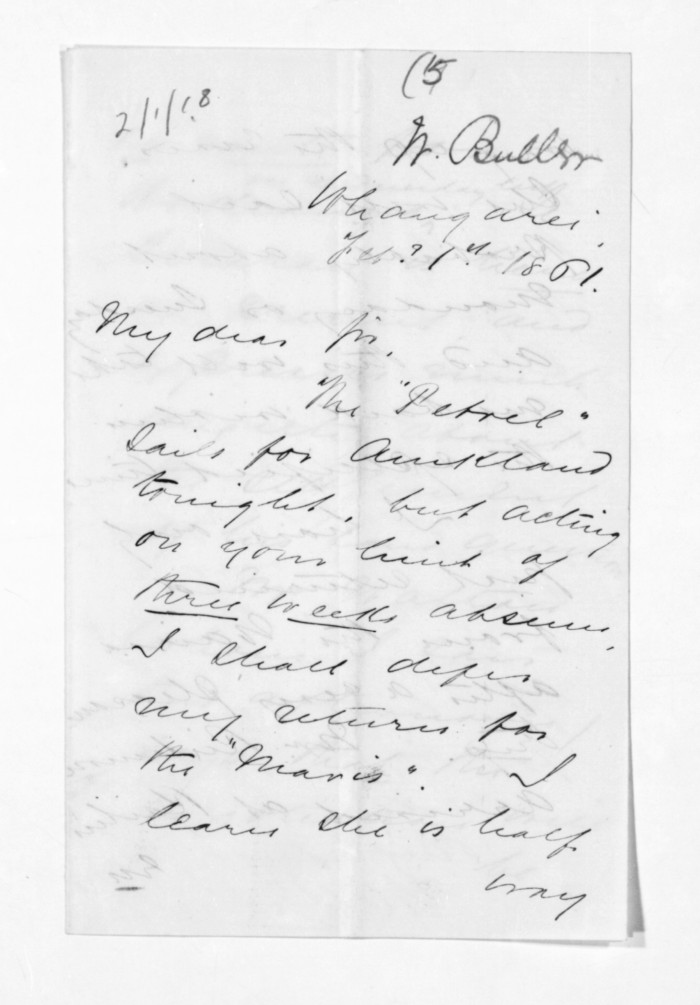 (5
2/1/18
W. Buller
Whangarei,
Feb. 7th. 1861.
My dear Sir,
The "Petrel"
sails for Auckland
tonight, but acting
on your hint of
three weeks absence,
I shall defer
my return for
the "Mavis". I
learn she is half
way